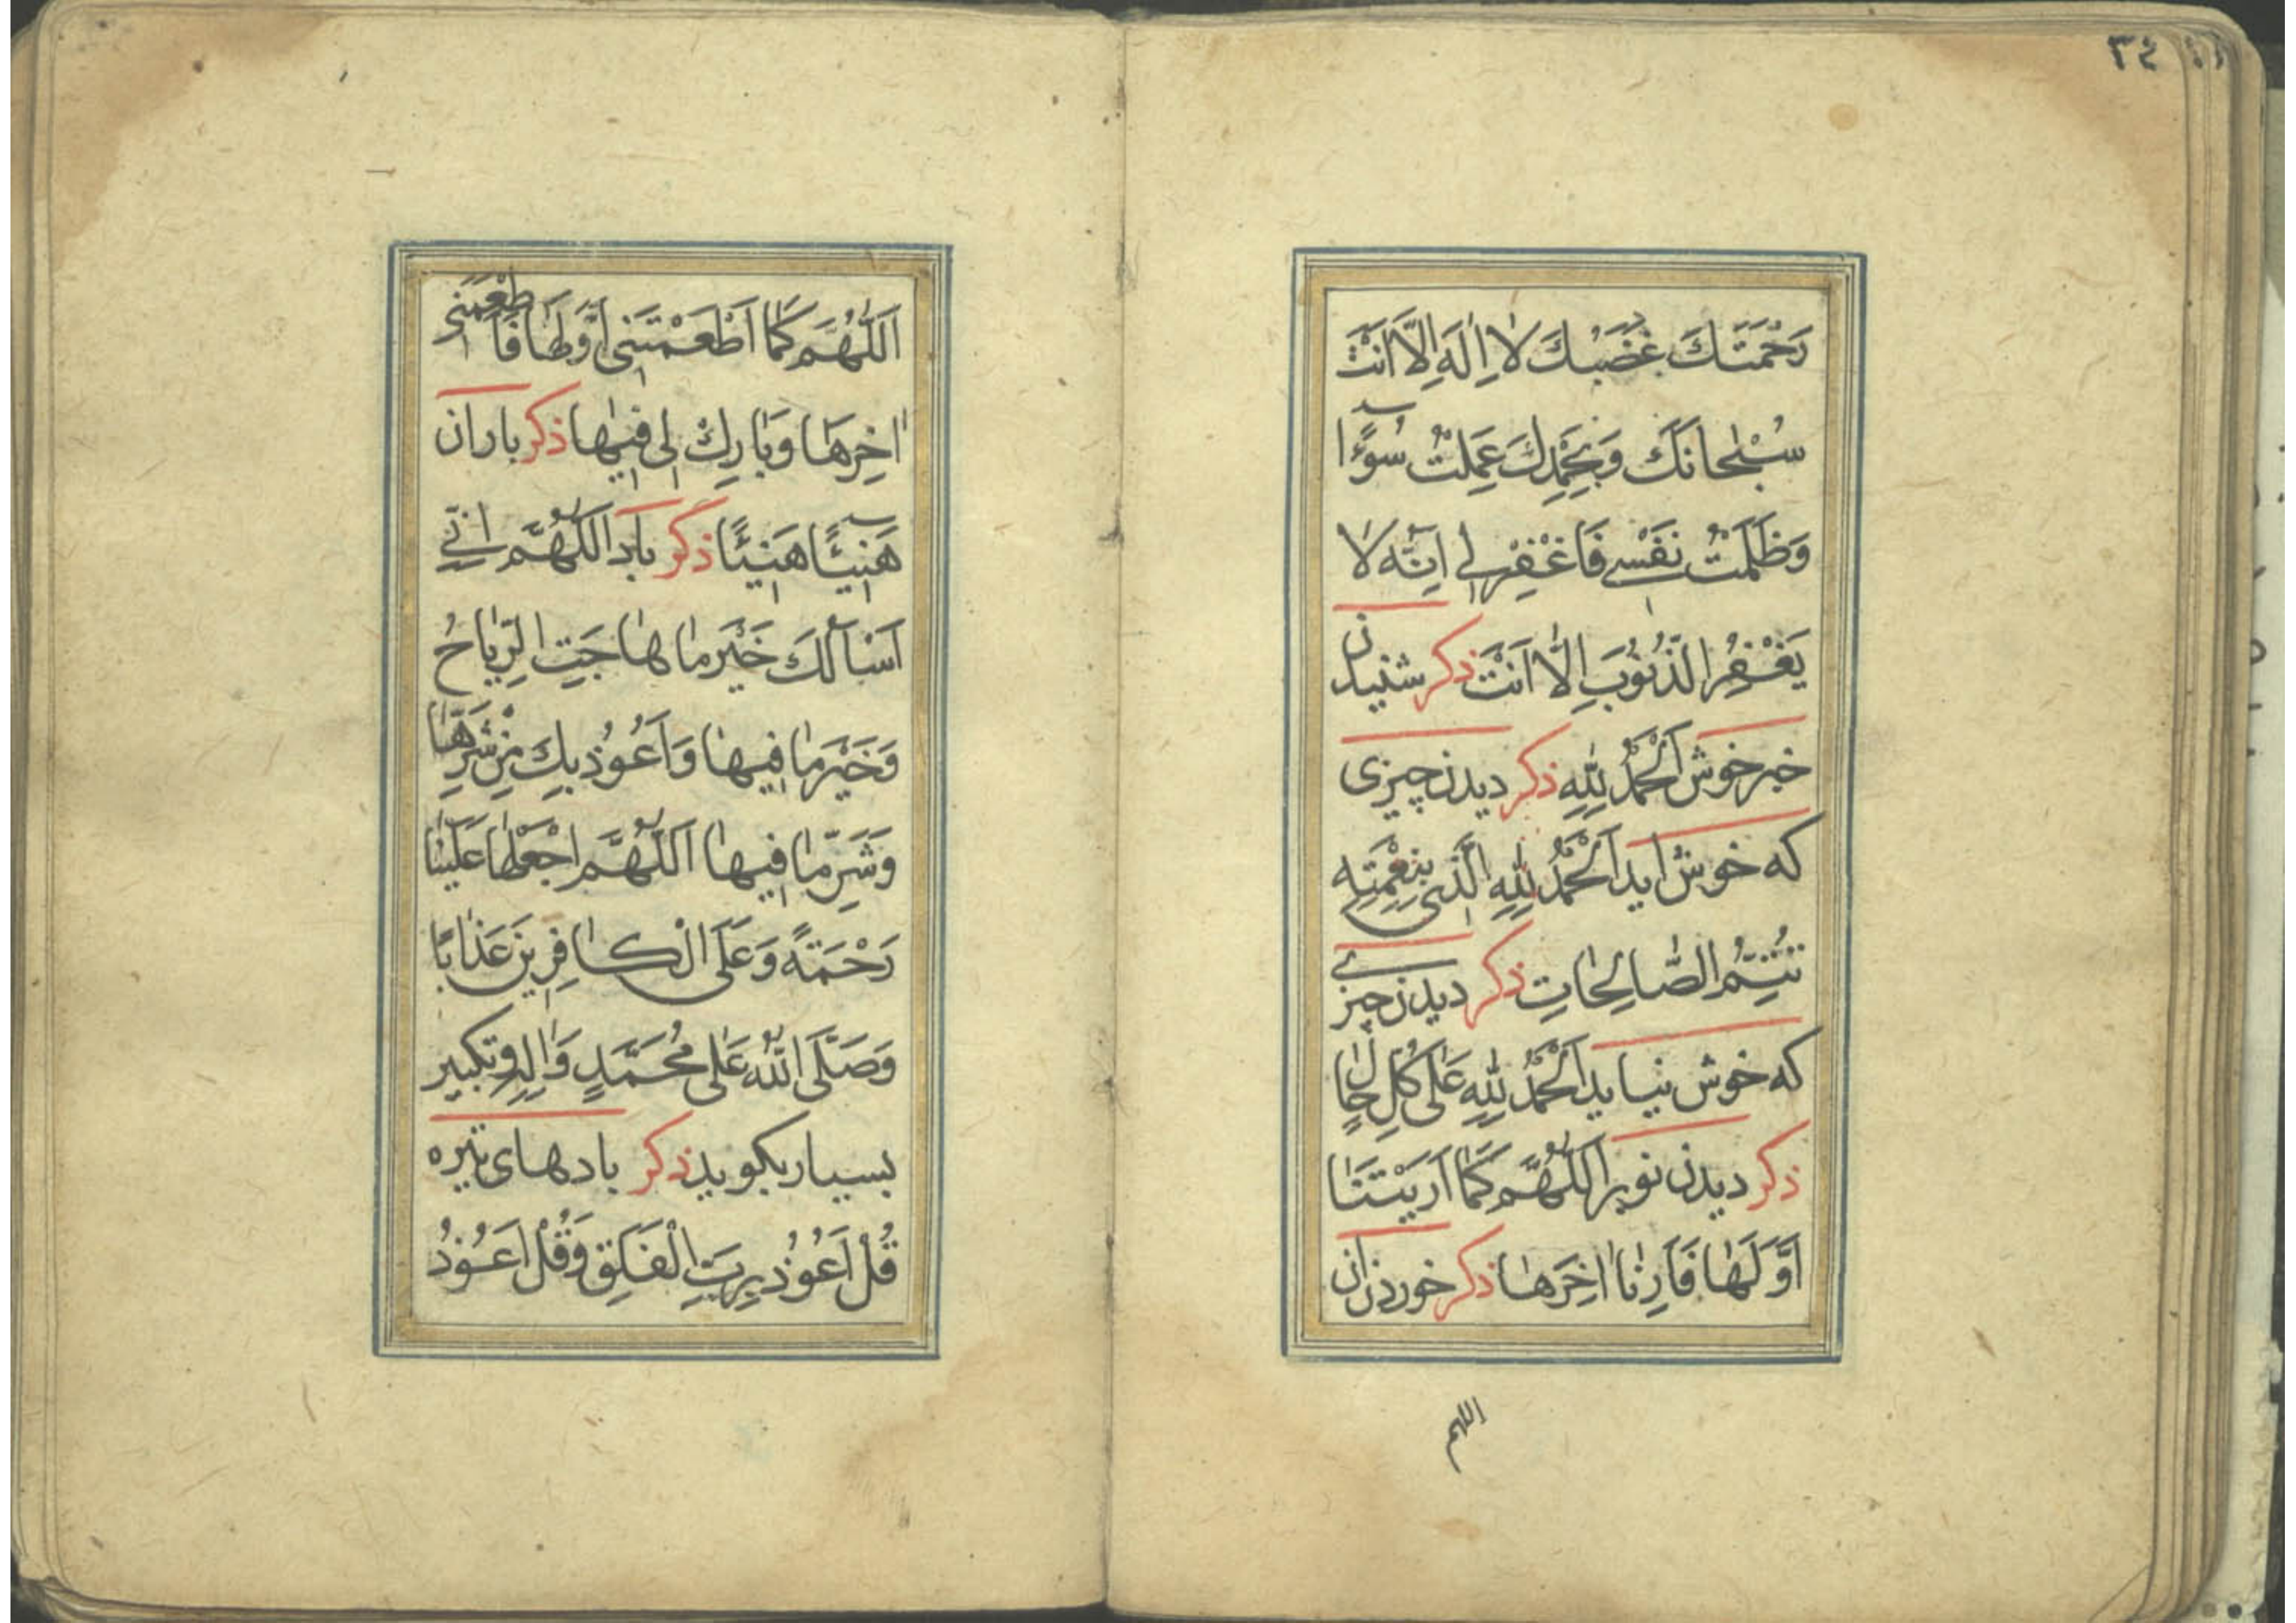 ٣٤
رَحْمَتَكَ غَضَبُكَ لا اِلٰهَ اِلّا اَنْتَ
سُبْحانَكَ وَبِحَمْدِكَ عَمِلْتُ سُوءًا
وَظَلَمْتُ نَفْسي فَاغْفِرْ لي اِنَّه لا
يَغْفِرُ الذُّنُوبَ اِلّا اَنْتَ ذكر شنيدن
خبر خوش اَلْحَمْدُ لِلّٰهِ ذكر ديدن چيزى
كه خوش ايد اَلْحَمْدُ لِلّٰهِ الَّذى بِنِعْمَتِه
تَتِمُّ الصّالِحاتِ ذكر ديدن چيزے
كه خوش نيايد اَلْحَمْدُ لِلّٰهِ عَلى كُلِّ حالٍ
ذكر ديدن نوبر اَللّٰهُمَّ كَما اَرَيْتَنا
اَوَّلَها فَاَرِنا اخِرَها ذكر خوردن ان
اللهم
اَللّٰهُمَّ كَما اَطْعَمْتَنى اَوَّلَها فَاَطْعِمْنى
اخِرَها وَبارِكْ لى فيها ذكر باران
هَنيئًا هَنيئًا ذكر باد اَللّٰهُمَّ اِنّي
اَسْاَلُكَ خَيْرَ ما هاجَتِ الرِّياحُ
وَخَيْرَ ما فيها وَاَعُوذُ بِكَ مِنْ شَرِّها
وَشَرِّ ما فيها اَللّٰهُمَّ اجْعَلْها عَلَيْنا
رَحْمَةً وَعَلَى الْكافِرينَ عَذابًا
وَصَلَّى اللّٰهُ عَلى مُحَمَّدٍ وَالِهِ وتكبير
بسيار بكويد ذكر بادهاى تيره
قُلْ اَعُوذُ بِرَبِّ الْفَلَقِ وَقُلْ اَعُوذُ